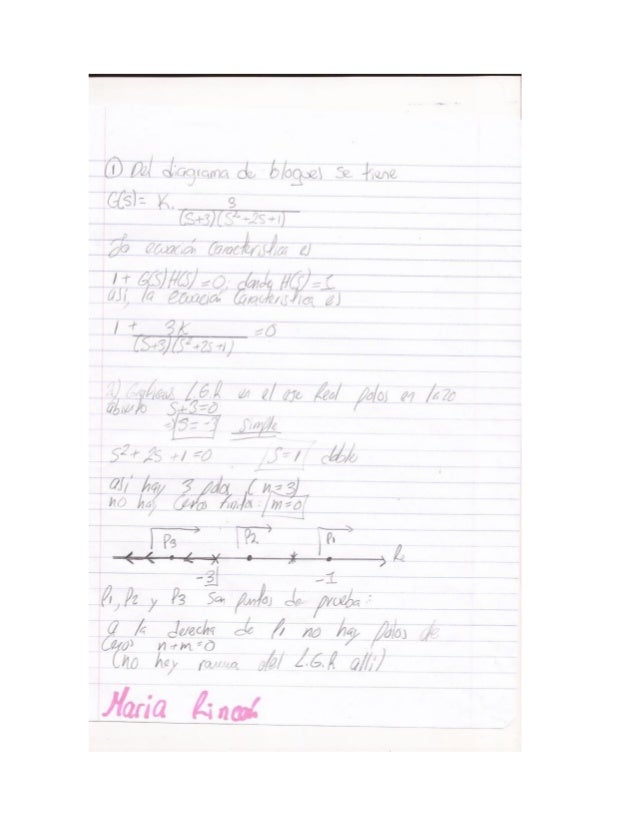 ① Del diagrama de bloques se tiene
G(s)= K. 3/(s+3)(s²+2s+1)
La ecuación característica es
1 + G(s)H(s)=0, donde H(s)=1
así, la ecuación característica es
1 + 3K/(s+3)(s²+2s+1) =0
2) L.G.R en el eje Real polos en lazo
abierto s+3=0
⇒ s=-3 simple
s²+2s+1=0 s=1 doble
así hay 3 polos (n=3)
no hay ceros finitos: m=0
P3 P2 P1
Re
-3 -1
P1, P2 y P3 son puntos de prueba:
a la derecha de P1 no hay polos de
ceros n+m=0
(no hay rama del L.G.R allí)
Maria Rincón